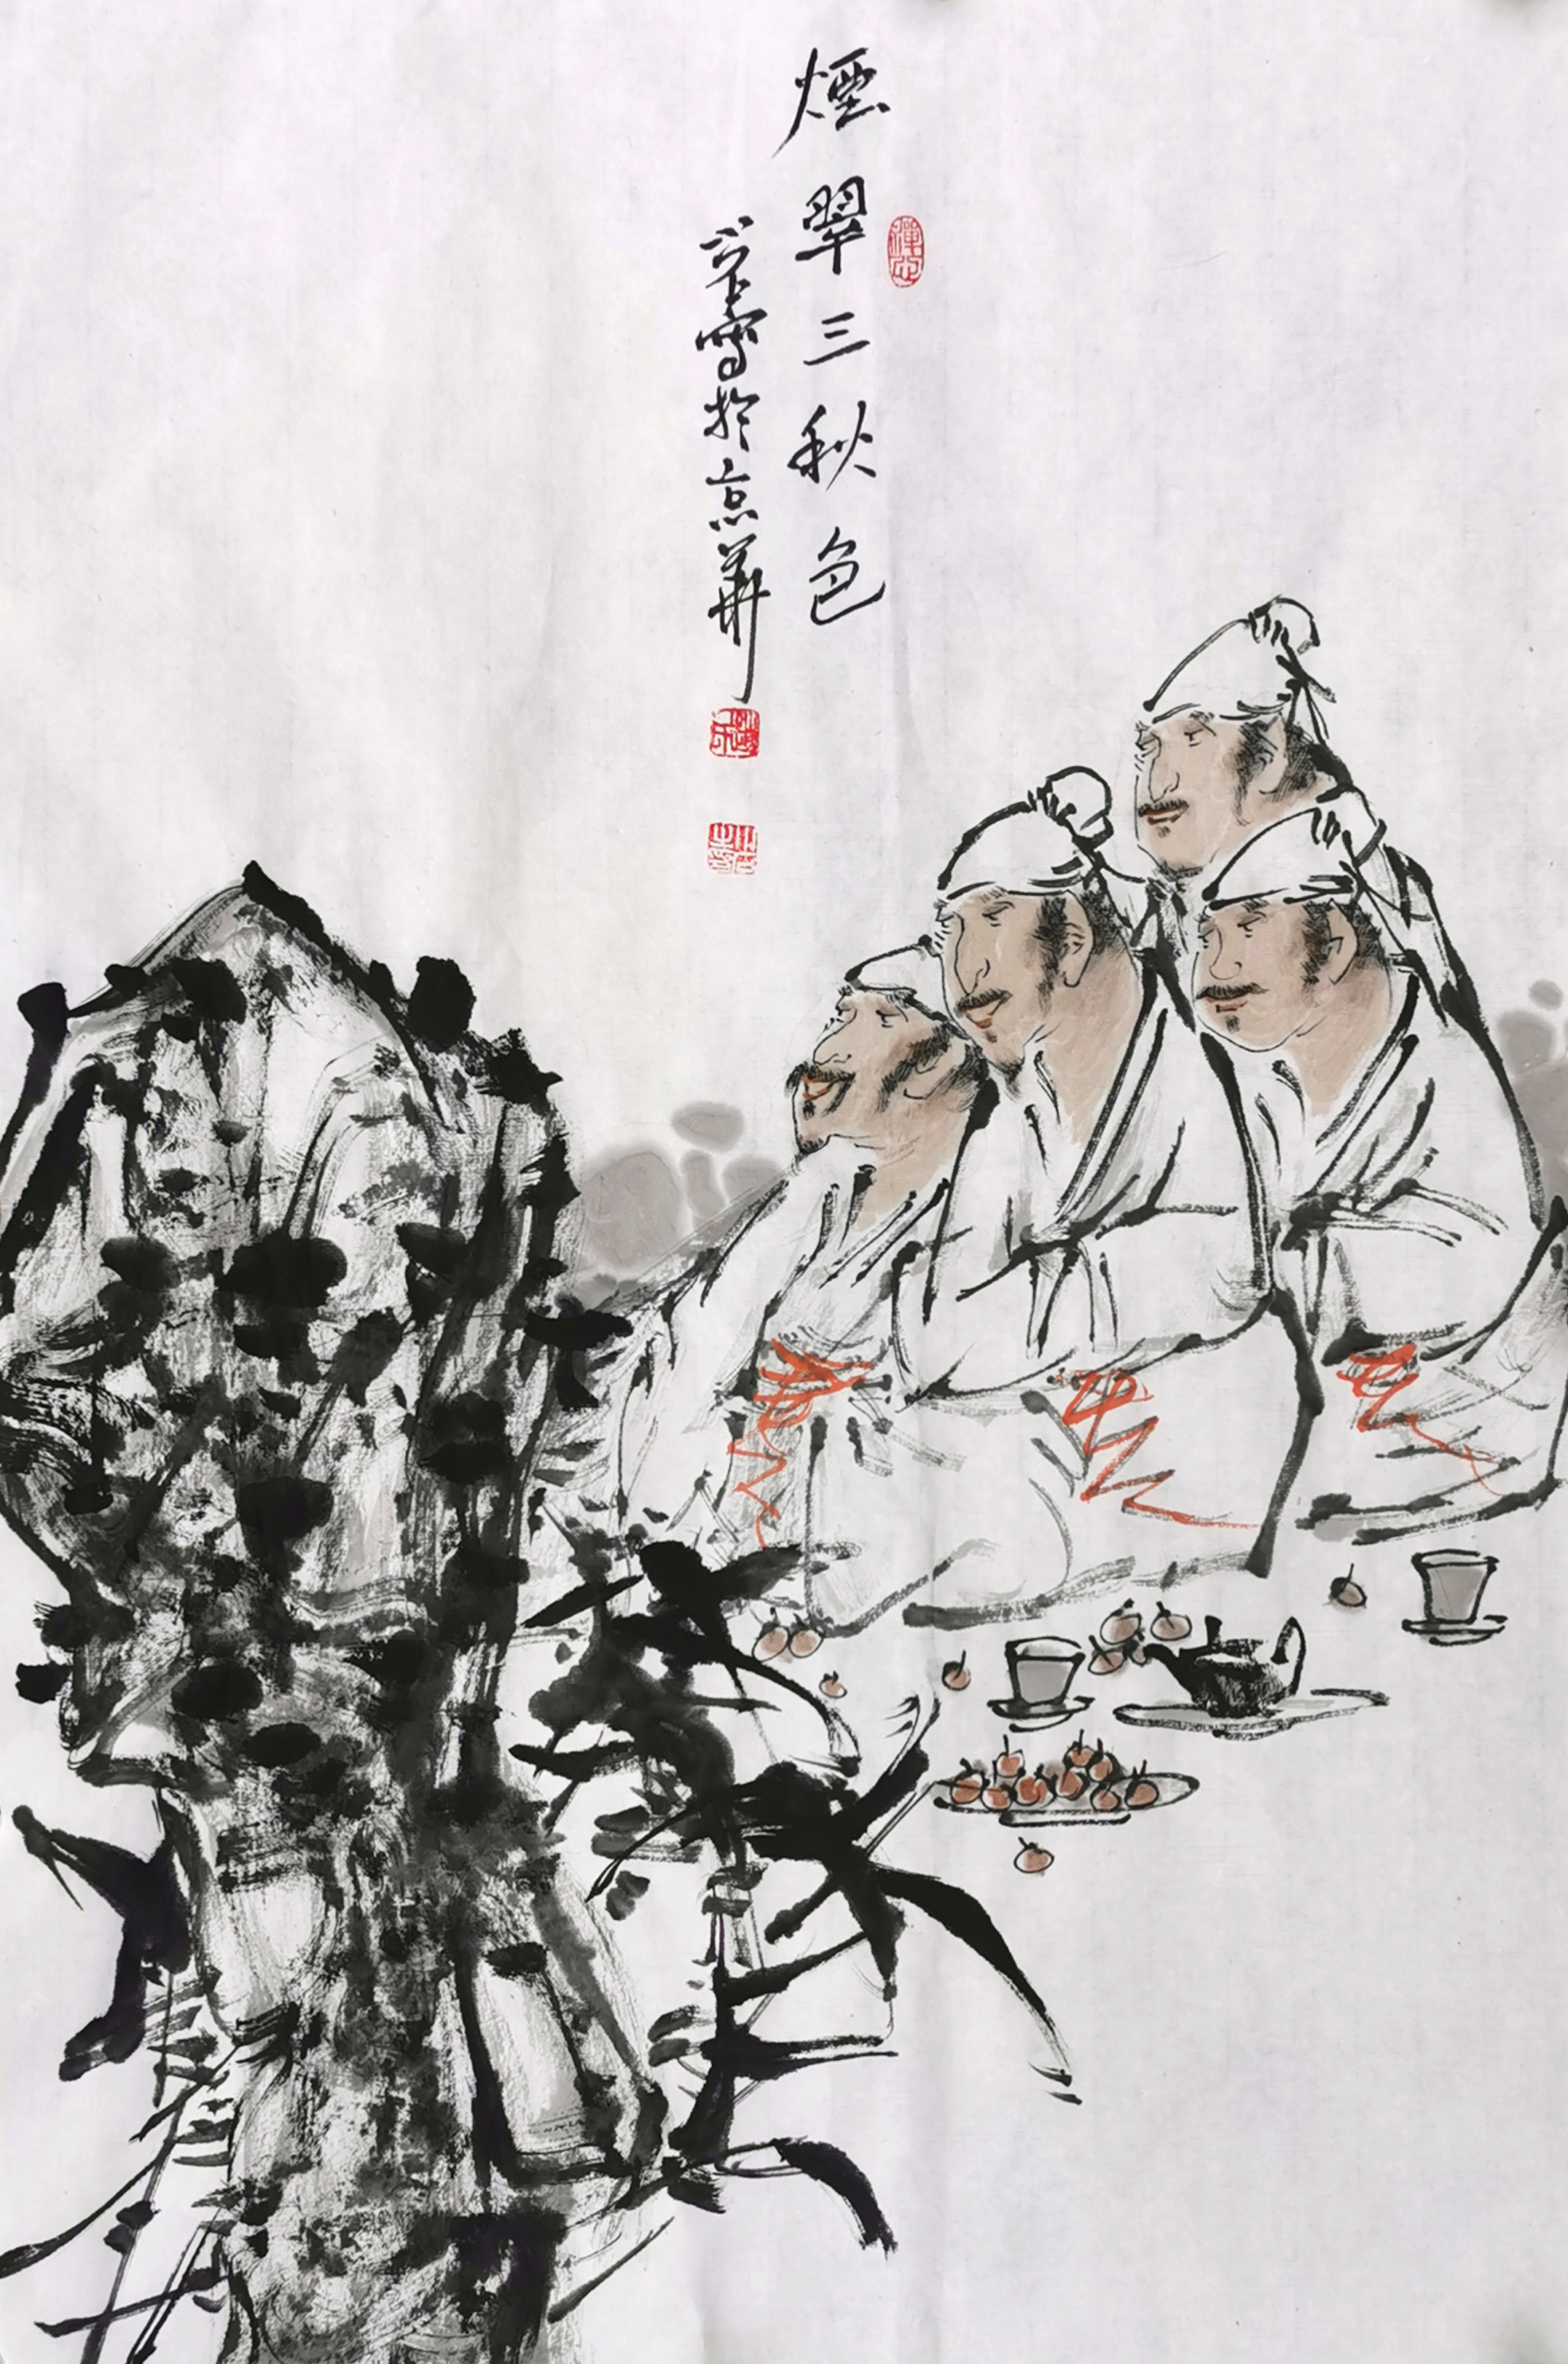 煙翠三秋色
寫於京華
禪心